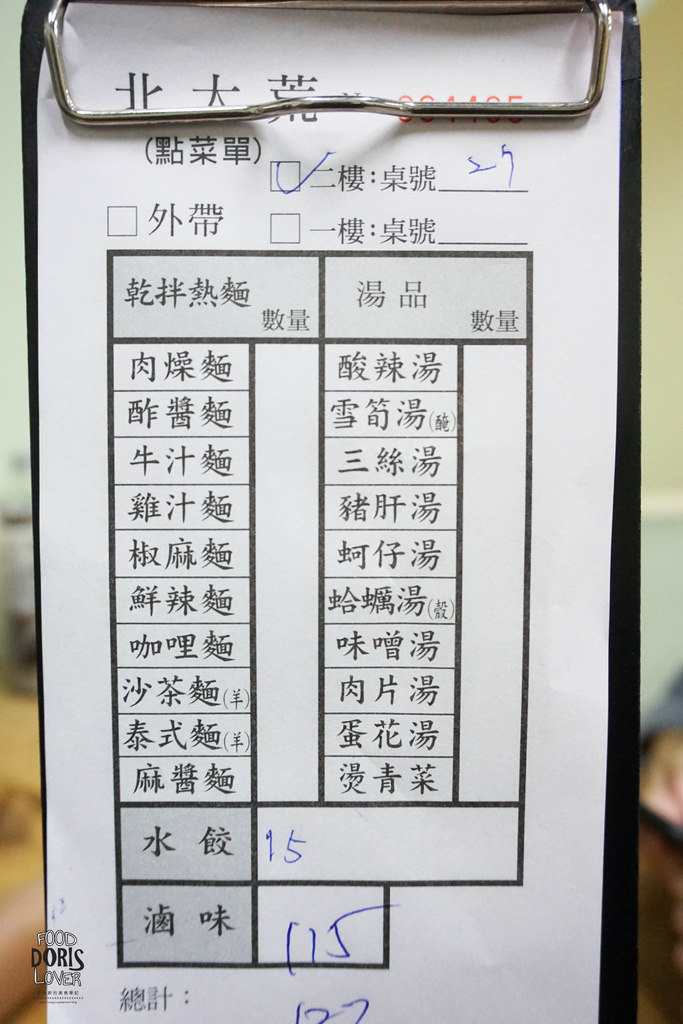 北大荒
(點菜單)
二樓:桌號 27
外帶 一樓:桌號
乾拌熱麵 數量 湯品 數量
肉燥麵 酸辣湯
酢醬麵 雪筍湯(醃)
牛汁麵 三絲湯
雞汁麵 豬肝湯
椒麻麵 蚵仔湯
鮮辣麵 蛤蠣湯(殼)
咖哩麵 味噌湯
沙茶麵(羊) 肉片湯
泰式麵(羊) 蛋花湯
麻醬麵 燙青菜
水餃 15
滷味 115
總計:
FOOD
DORIS
LOVER